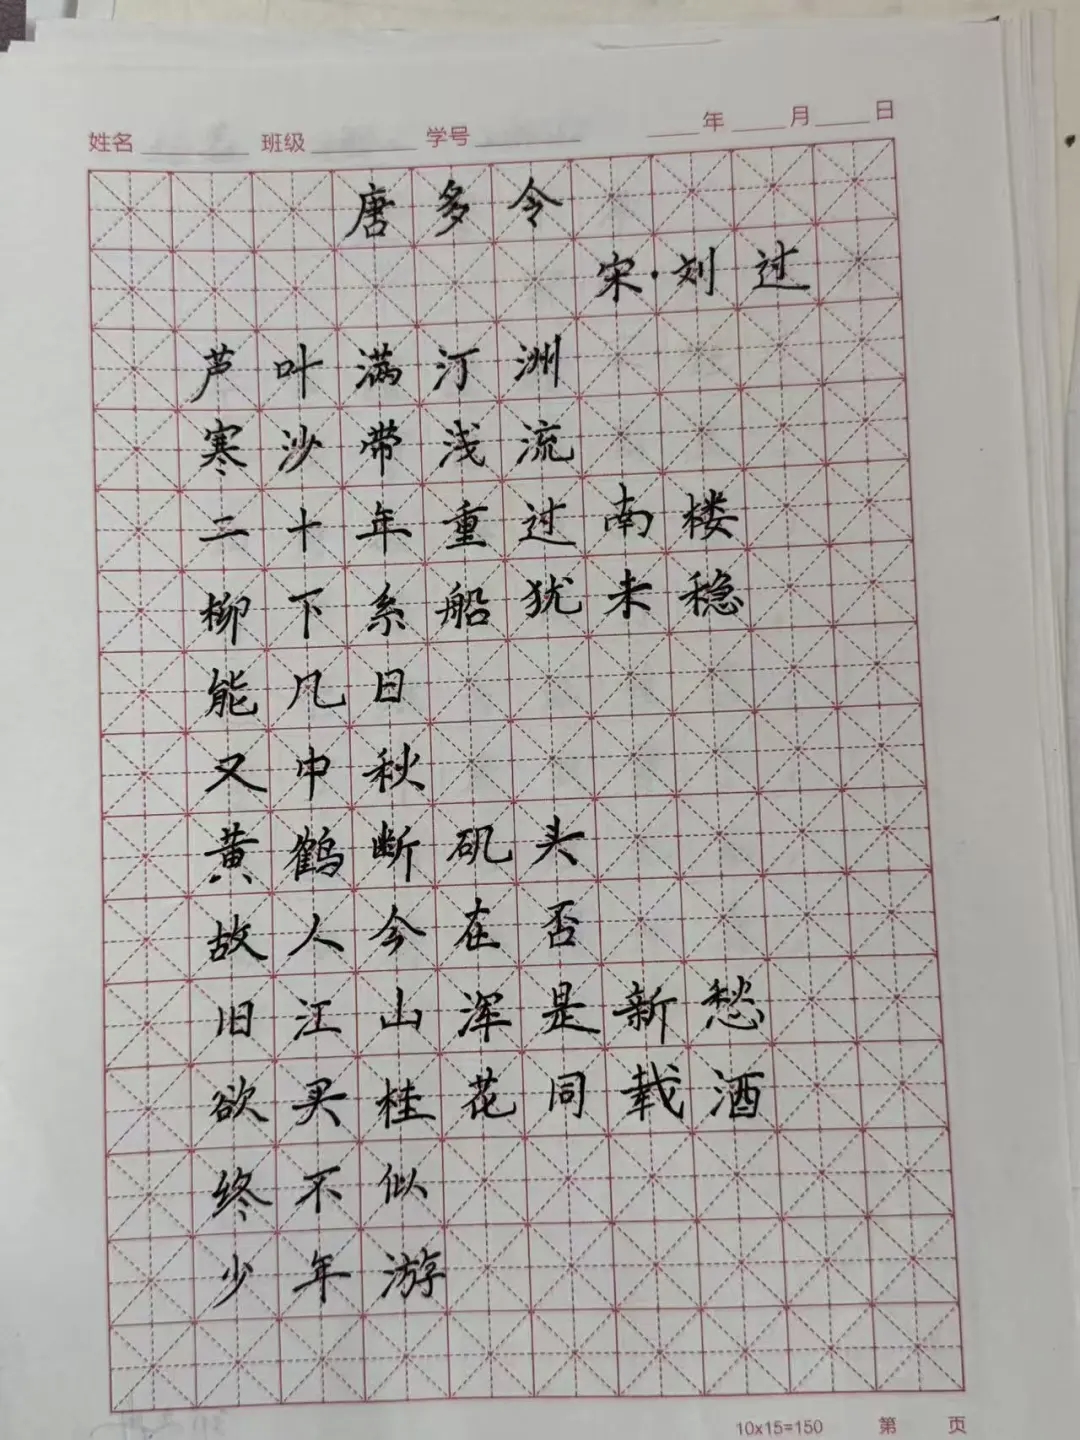 姓名 班级 学号 年 月 日
唐多令
宋·刘过
芦叶满汀洲
寒沙带浅流
二十年重过南楼
柳下系船犹未稳
能几日
又中秋
黄鹤断矶头
故人今在否
旧江山浑是新愁
欲买桂花同载酒
终不似
少年游
10x15=150 第 页